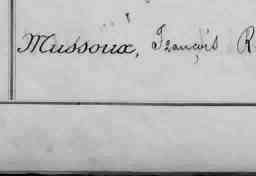 Mussoux, François R